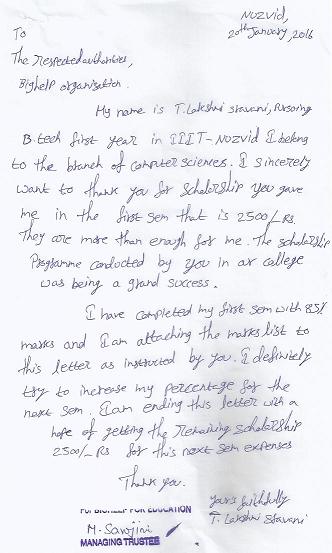 Nuzvid,
20th January, 2016
To
The Respected authorities,
Bighelp organisation.
My name is T. Lakshmi Sravani, Pursuing
B-tech first year in IIIT-Nuzvid I belong
to the branch of computer sciences. I sincerely
want to thank you for scholarship you gave
me in the first sem that is 2500/- Rs.
They are more than enough for me. The scholarship
Programme conducted by you in our college
was being a grand success.
I have completed my first sem with 85%
marks and I am attaching the marks list to
this letter as instructed by you. I definitely
try to increase my percentage for the
next sem. I am ending this letter with a
hope of getting the remaining scholarship
2500/- Rs for this next sem expenses
Thank you.
Yours faithfully
T. Lakshmi Sravani
For BIGHELP FOR EDUCATION
M. Sarojini
MANAGING TRUSTEE